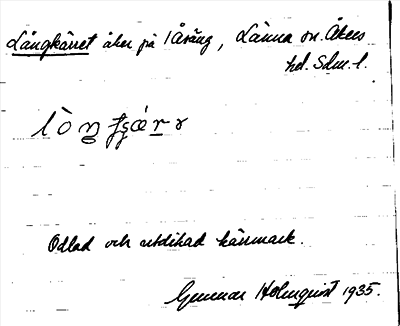 Långkärret åker på 1 Åsäng, Länna sn. Åkers
hd. Sdm. l.
Odlad och utdikad kärrmark.
Gunnar Holmquist 1935.